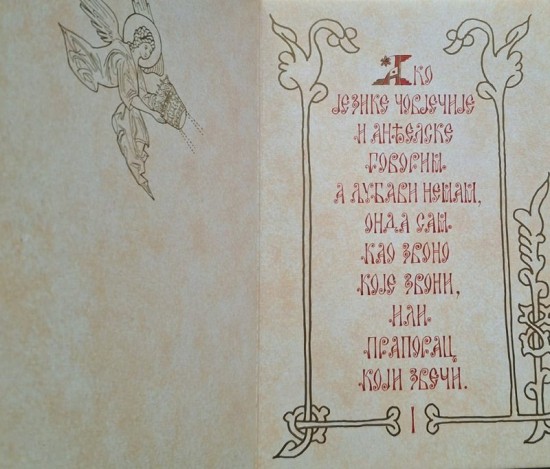 Ако
језике човјечије
и анђелске
говорим
а љубави немам,
онда сам
као звоно
које звони,
или
прапорац
који звечи.
I